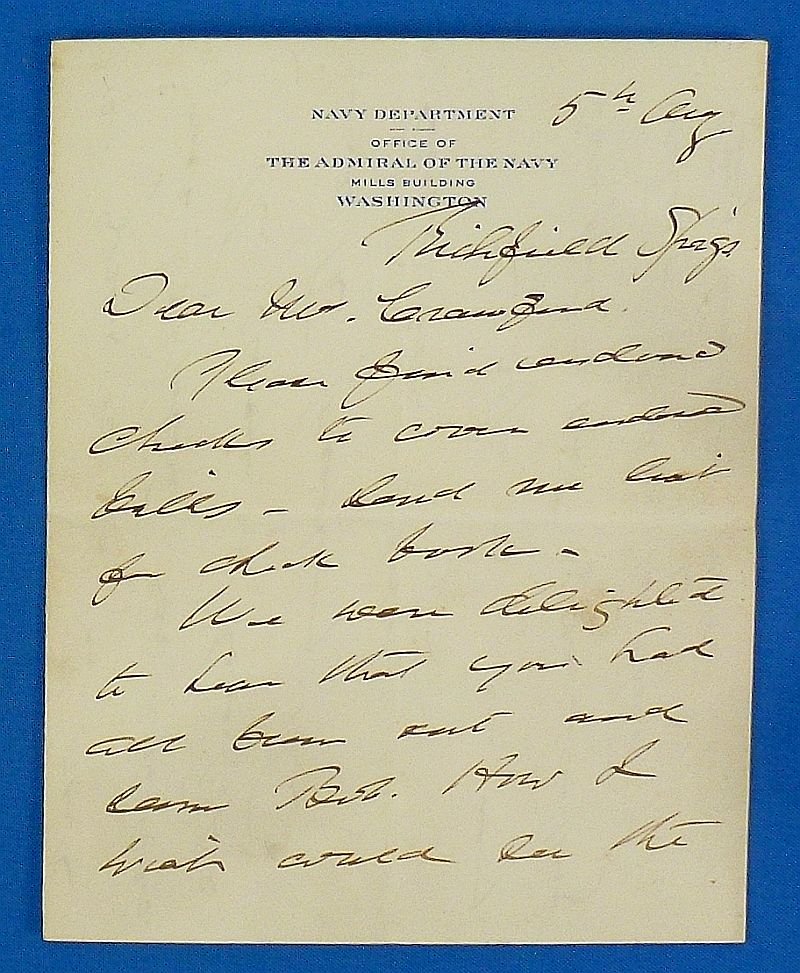 NAVY DEPARTMENT
OFFICE OF
THE ADMIRAL OF THE NAVY
MILLS BUILDING
WASHINGTON
5th Aug
Richfield Spgs
Dear Mr. Crawford.
Please find enclosed
checks to cover enclosed
bills - Send me
for check book -
We were delighted
to hear that you had
all been out and
seen Bob. How I
wish could see the